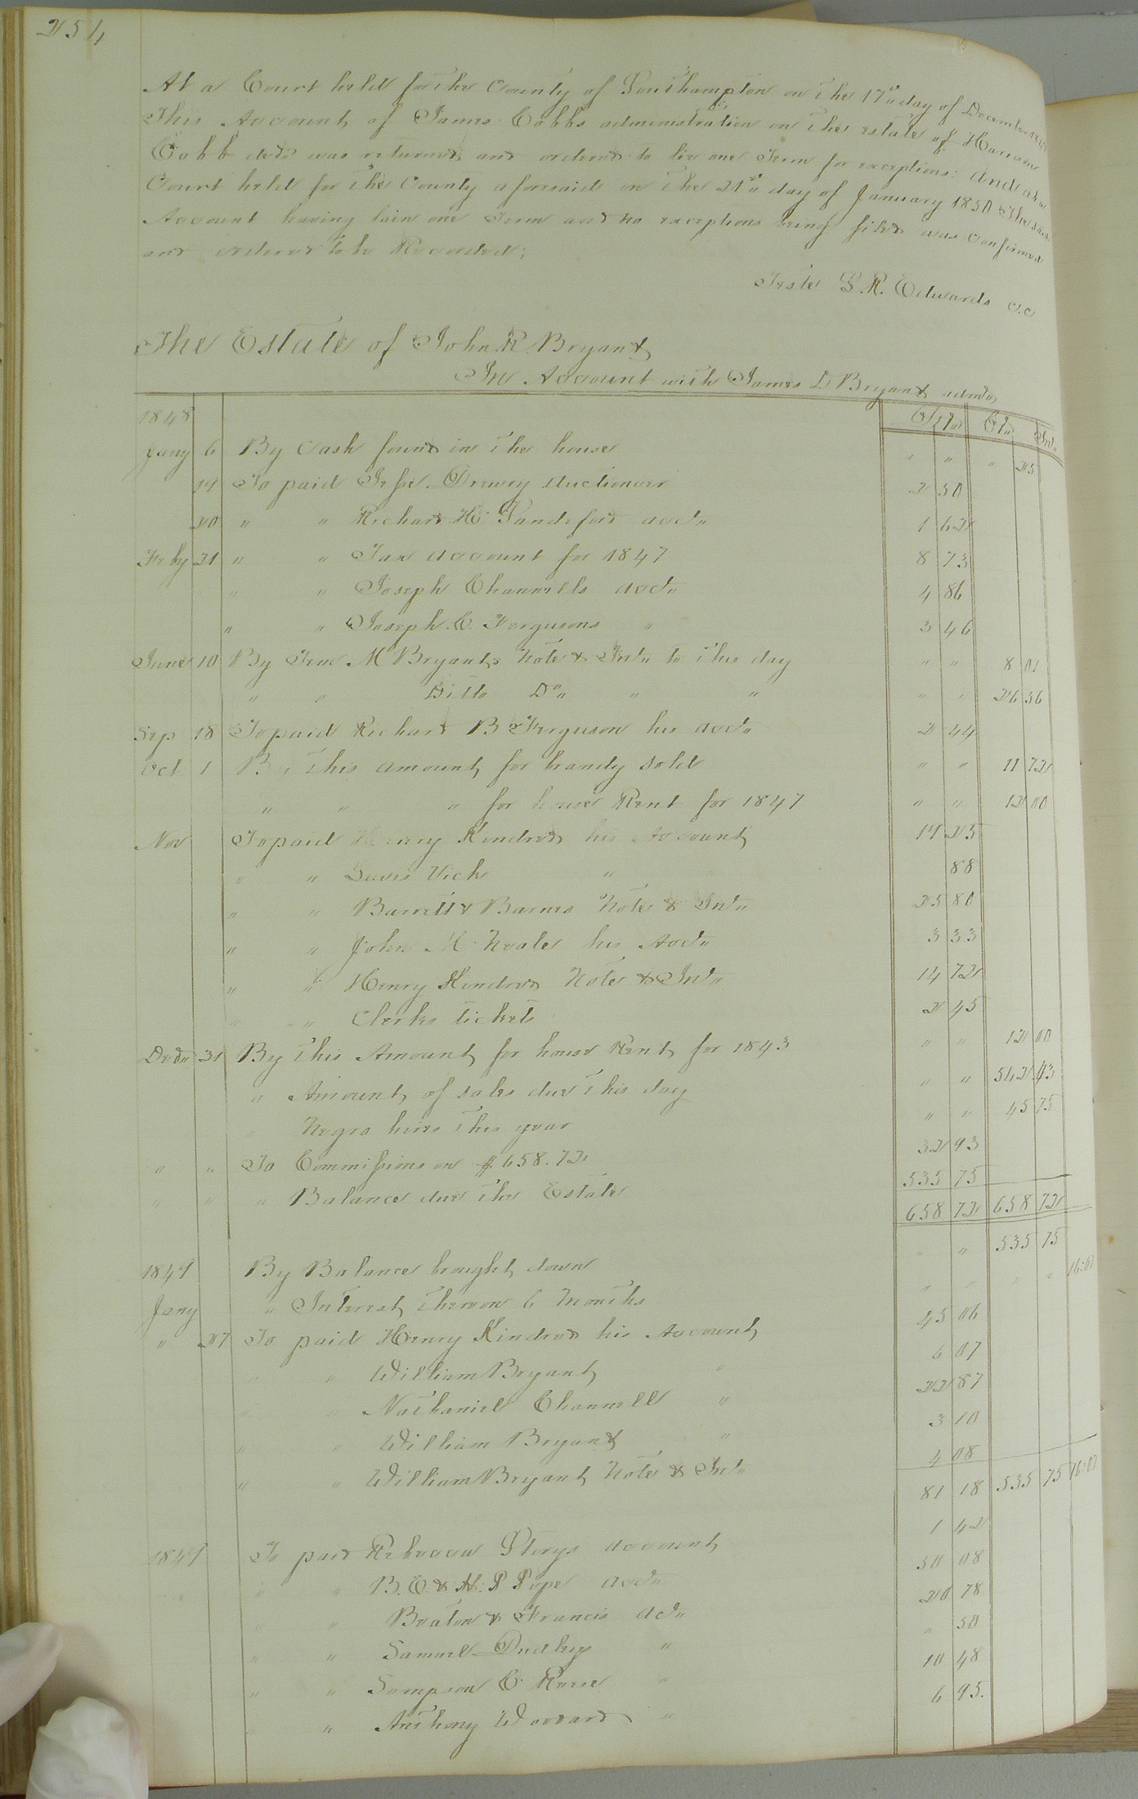 254
At a Court held for the County of Southampton on the 17th day of December 1849
This Account of James Cobbs administration on the estate of Harrison
Cobb decd was returned and ordered to lie one Term for exceptions: And at a
Court held for the County aforesaid on the 21st day of January 1850 The said
Account having lain one Term and no exceptions being filed was confirmed
and ordered to be Recorded;
Teste L. R. Edwards c.c
The Estate of John R Bryant
In Account with James D Bryant admr
1848 Drs Crs Int
Jany 6 By Cash found in the house " " " 25
19 To paid Jesse Drewry auctioneer 2 50
20 " " Richard H. Sandeford acct 1 62
Feby 21 " " Tax account for 1847 8 73
" " Joseph Channells acct 4 86
" " Joseph C. Fergusons " 3 46
June 10 By Jno M Bryants Note & Int to this day " " 8 01
" " Ditto Do " " " " 26 56
Sep 18 To paid Richard B Ferguson his acct 2 44
Oct 1 By this amount for brandy sold " " 11 72
" " " for house Rent for 1847 " " 12 00
Nov To paid Henry Kindred his Account 19 25
" " Davis Vick " 88
" " Barrett & Barnes Note & Int 25 80
" " John M Neale his Acct 3 33
" " Henry Kindred Note & Int 14 72
" " Clerks tickets 2 45
Decr 31 By this Amount for house Rent for 1843 " " 12 00
" Amount of sales due this day " " 542 43
Negro hires this year " " 45 75
" " To Commissions on $658.72 32 93
" " " Balance due the Estate 535 75
658 72 658 72
1849 By Balance brought down " " 535 75
Jany " Interest thereon 6 months " " " " 16.07
" 27 To paid Henry Kindred his Account 45 06
" " William Bryant " 6 07
" " Nathaniel Channell " 22 87
" " William Bryant " 3 10
" " William Bryant Note & Int 4 08
81 18 535 75 16.07
1849 To paid Rebecca Storys account 1 42
" " B. C & H. P Pope acct 50 08
" " Beaton & Francis act 20 78
" " Samuel Dudley " " 50
" " Sampson C Reese " 10 48
" " Anthony Woodard " 6 95.